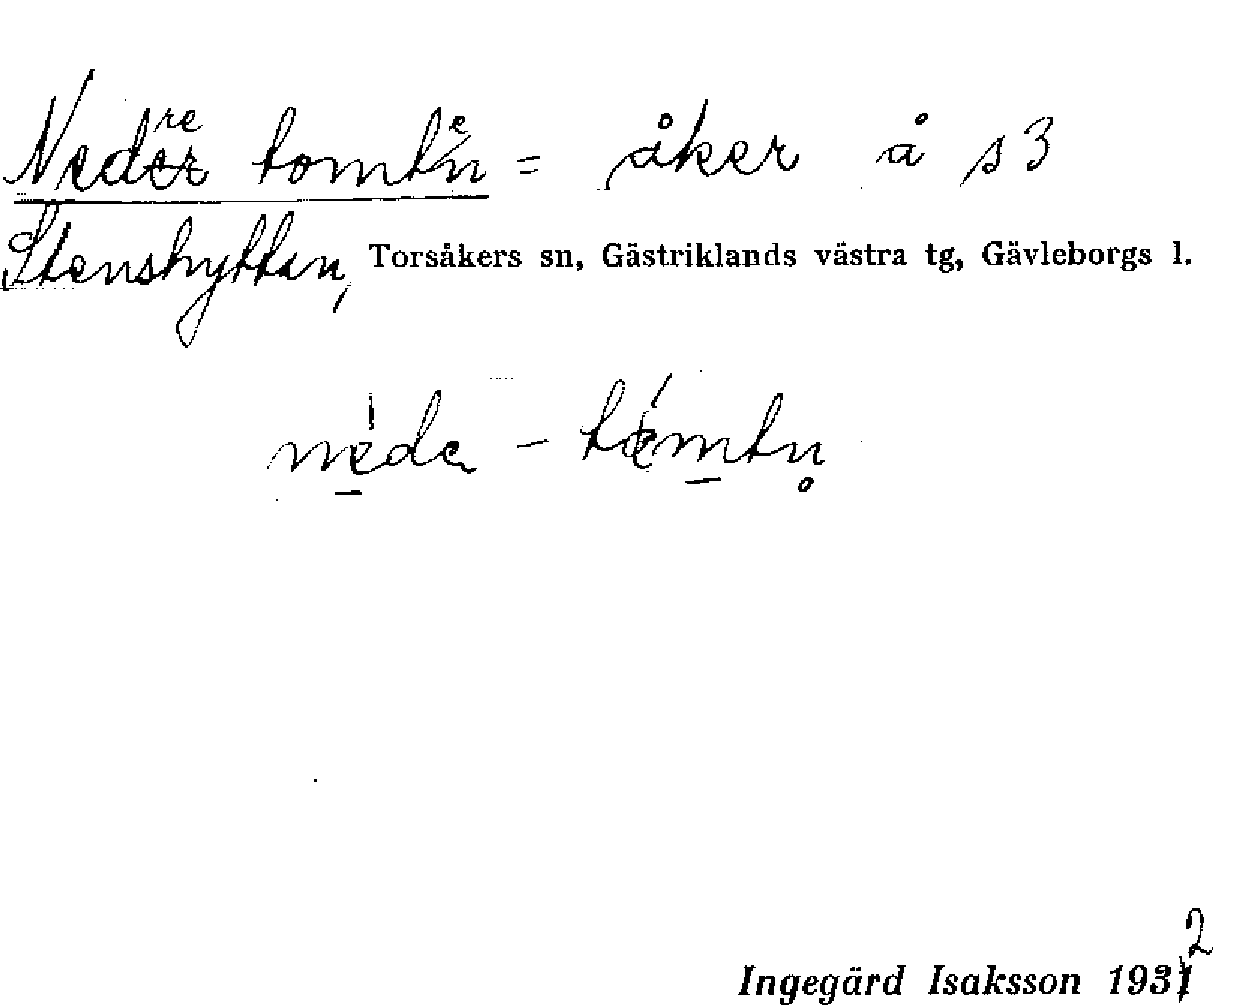 Nedre tomten = åker å s 3
Stenshyttan, Torsåkers sn, Gästriklands västra tg, Gävleborgs l.
néda - tómtn̥
Ingegärd Isaksson 1932